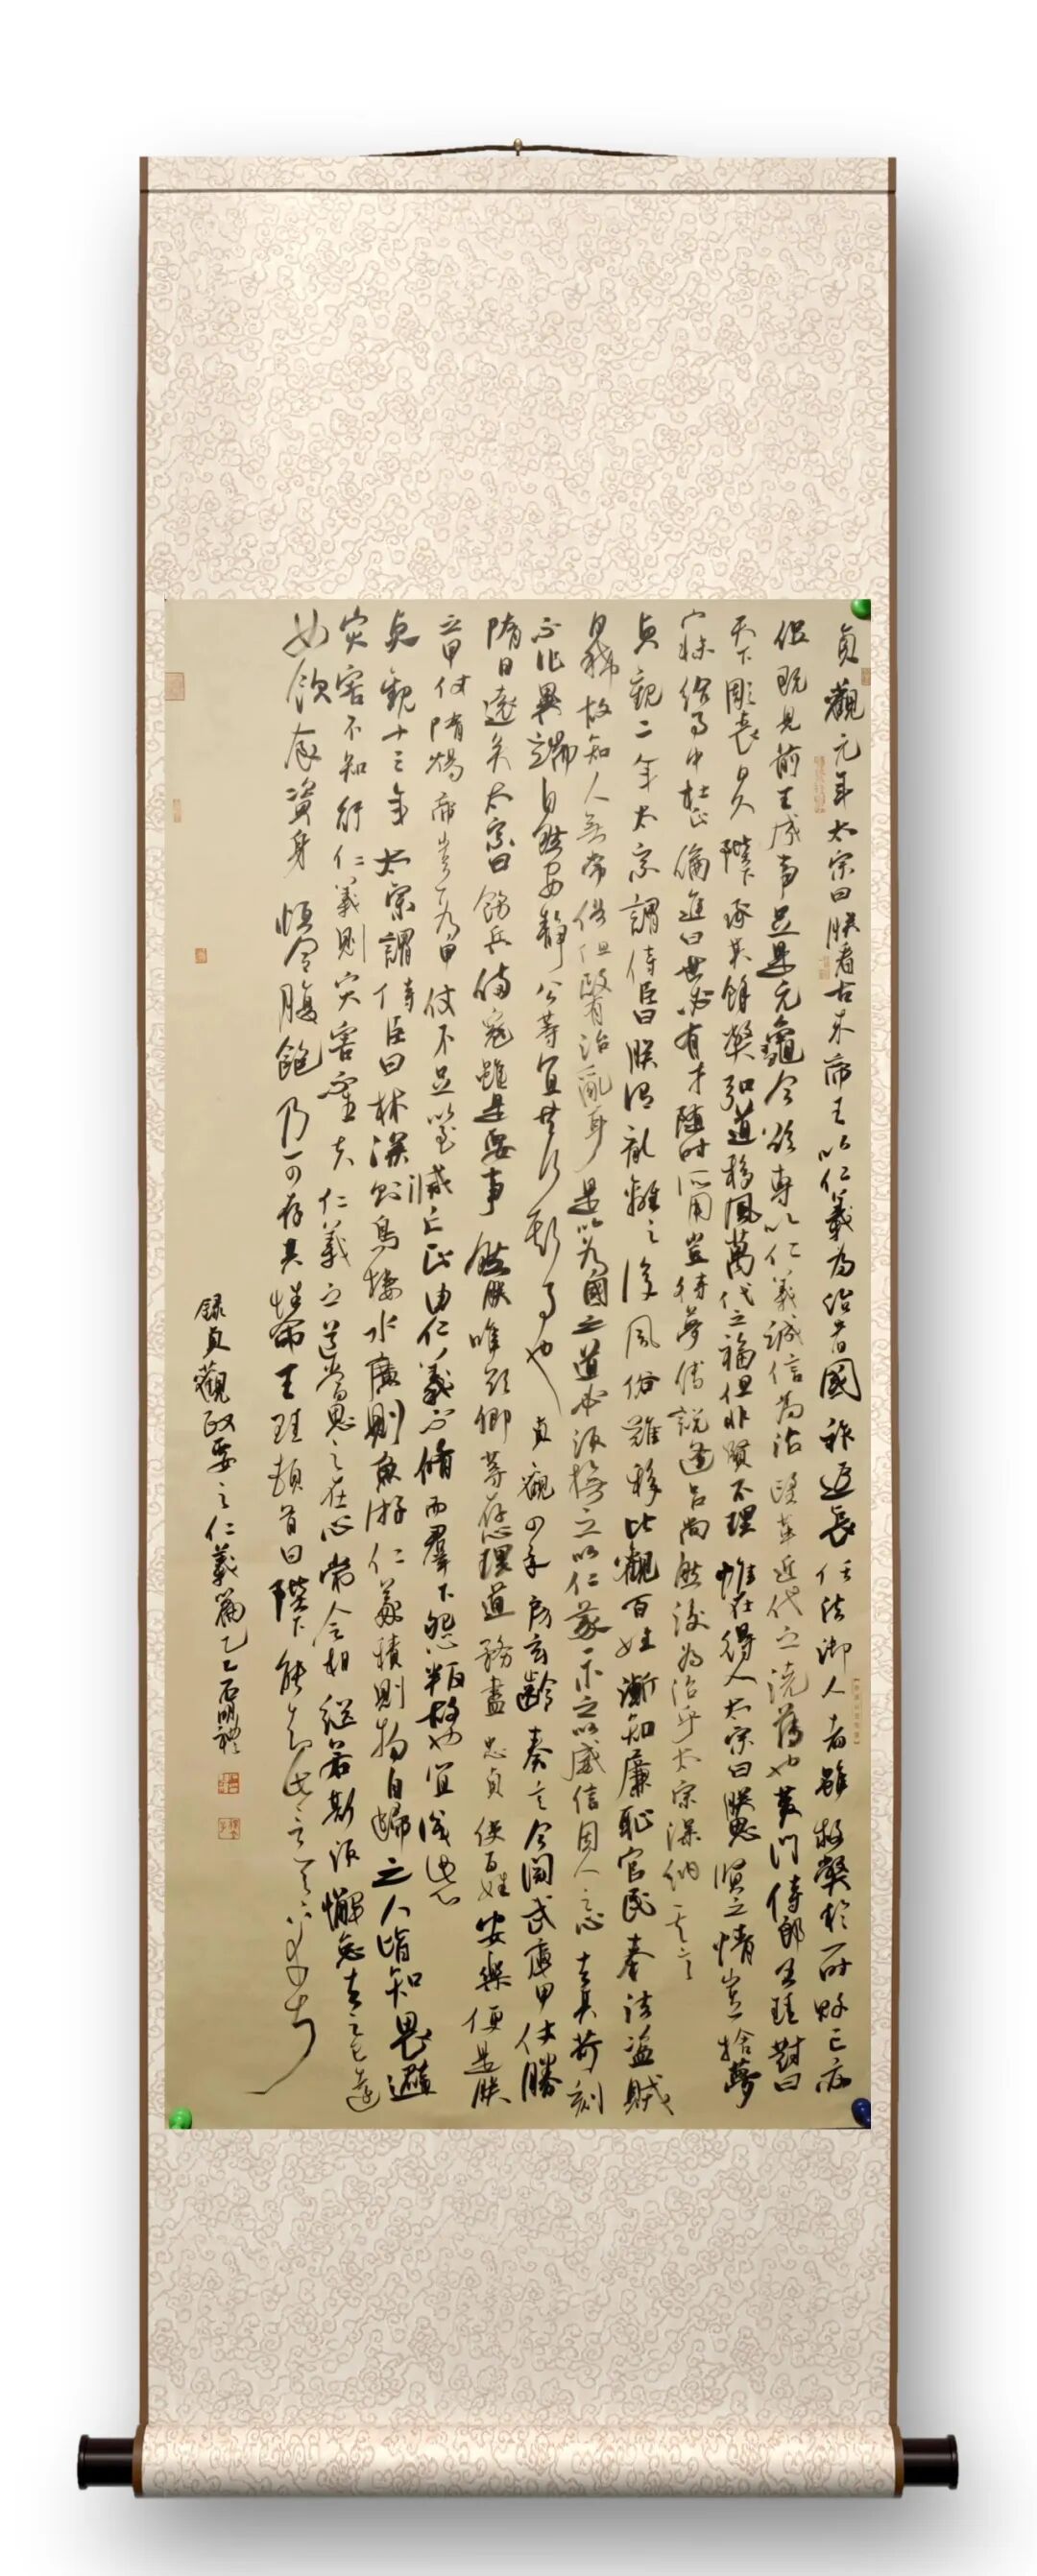 貞觀元年太宗曰朕看古來帝王以仁義為治者國祚延長任法御人者雖救弊於一時敗亡亦
促既見前王成事足是元龜今欲專以仁義誠信為治望革近代之澆薄也黃門侍郎王珪對曰
天下彫喪日久陛下承其餘弊弘道移風萬代之福但非賢不理惟在得人太宗曰朕思賢之情豈捨夢
寐給事中杜正倫進曰世必有才隨時所用豈待夢傅說逢呂尚然後為治乎太宗深納其言
貞觀二年太宗謂侍臣曰朕謂亂離之後風俗難移比觀百姓漸知廉恥官民奉法盜賊
日稀故知人無常俗但政有治亂耳是以為國之道必須撫之以仁義示之以威信因人之心去其苛刻
不作異端自然安靜公等宜共行斯事也貞觀四年房玄齡奏言今閱武庫甲仗勝
隋日遠矣太宗曰飭兵備寇雖是要事然朕唯欲卿等存心理道務盡忠貞使百姓安樂便是朕
之甲仗隋煬帝豈為甲仗不足以至滅亡正由仁義不修而羣下怨叛故也宜識此心
貞觀十三年太宗謂侍臣曰林深則鳥棲水廣則魚游仁義積則物自歸之人皆知畏避
災害不知行仁義則災害不生夫仁義之道當思之在心常令相繼若斯須懈怠去之已遠
如飲食資身恒令腹飽乃可存其性命王珪頓首曰陛下能知此言天下幸甚
錄貞觀政要之仁義篇乙巳石明禮